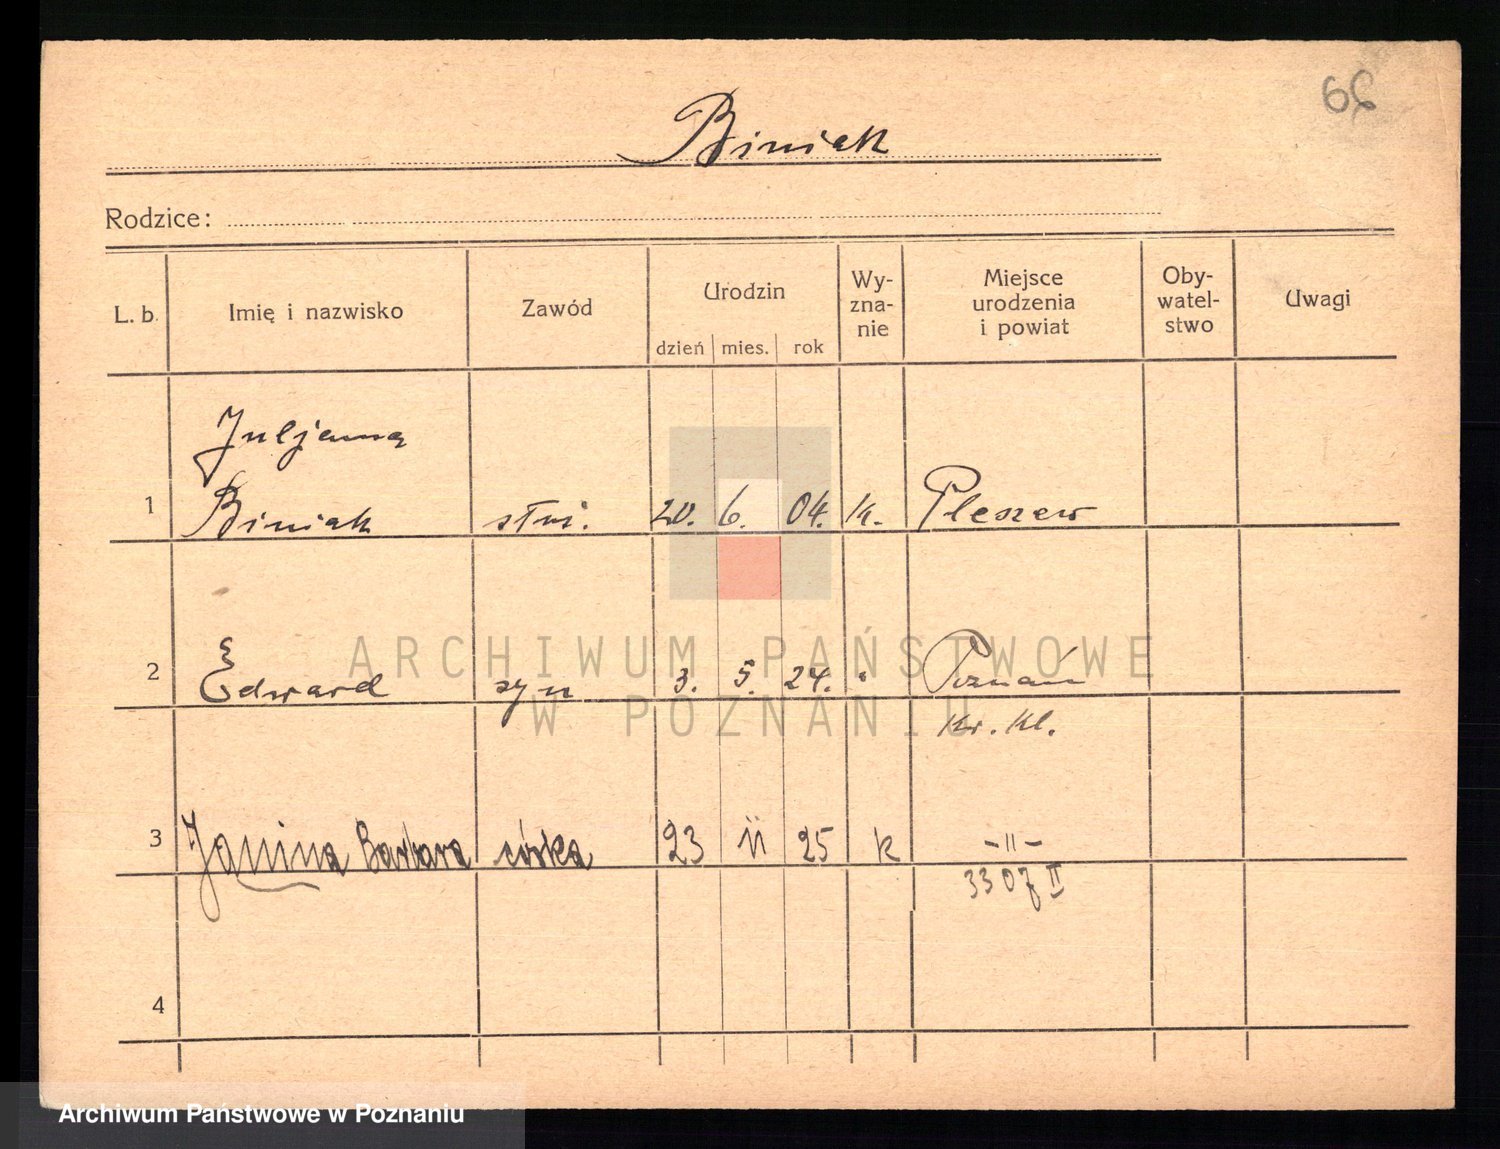 69
Biniak
Rodzice:
L. b. Imię i nazwisko Zawód Urodzin dzień mies. rok Wy-zna-nie Miejsce urodzenia i powiat Oby-watel-stwo Uwagi
Juljanna
1 Biniak służ. 20. 6. 04. k. Pleszew
2 Edward syn 3. 5. 24. " Poznań
Kr. Kl.
3 Janina Barbara córka 23 11 25 k -"-
3307 II
4
ARCHIWUM PAŃSTWOWE
W POZNANIU
Archiwum Państwowe w Poznaniu